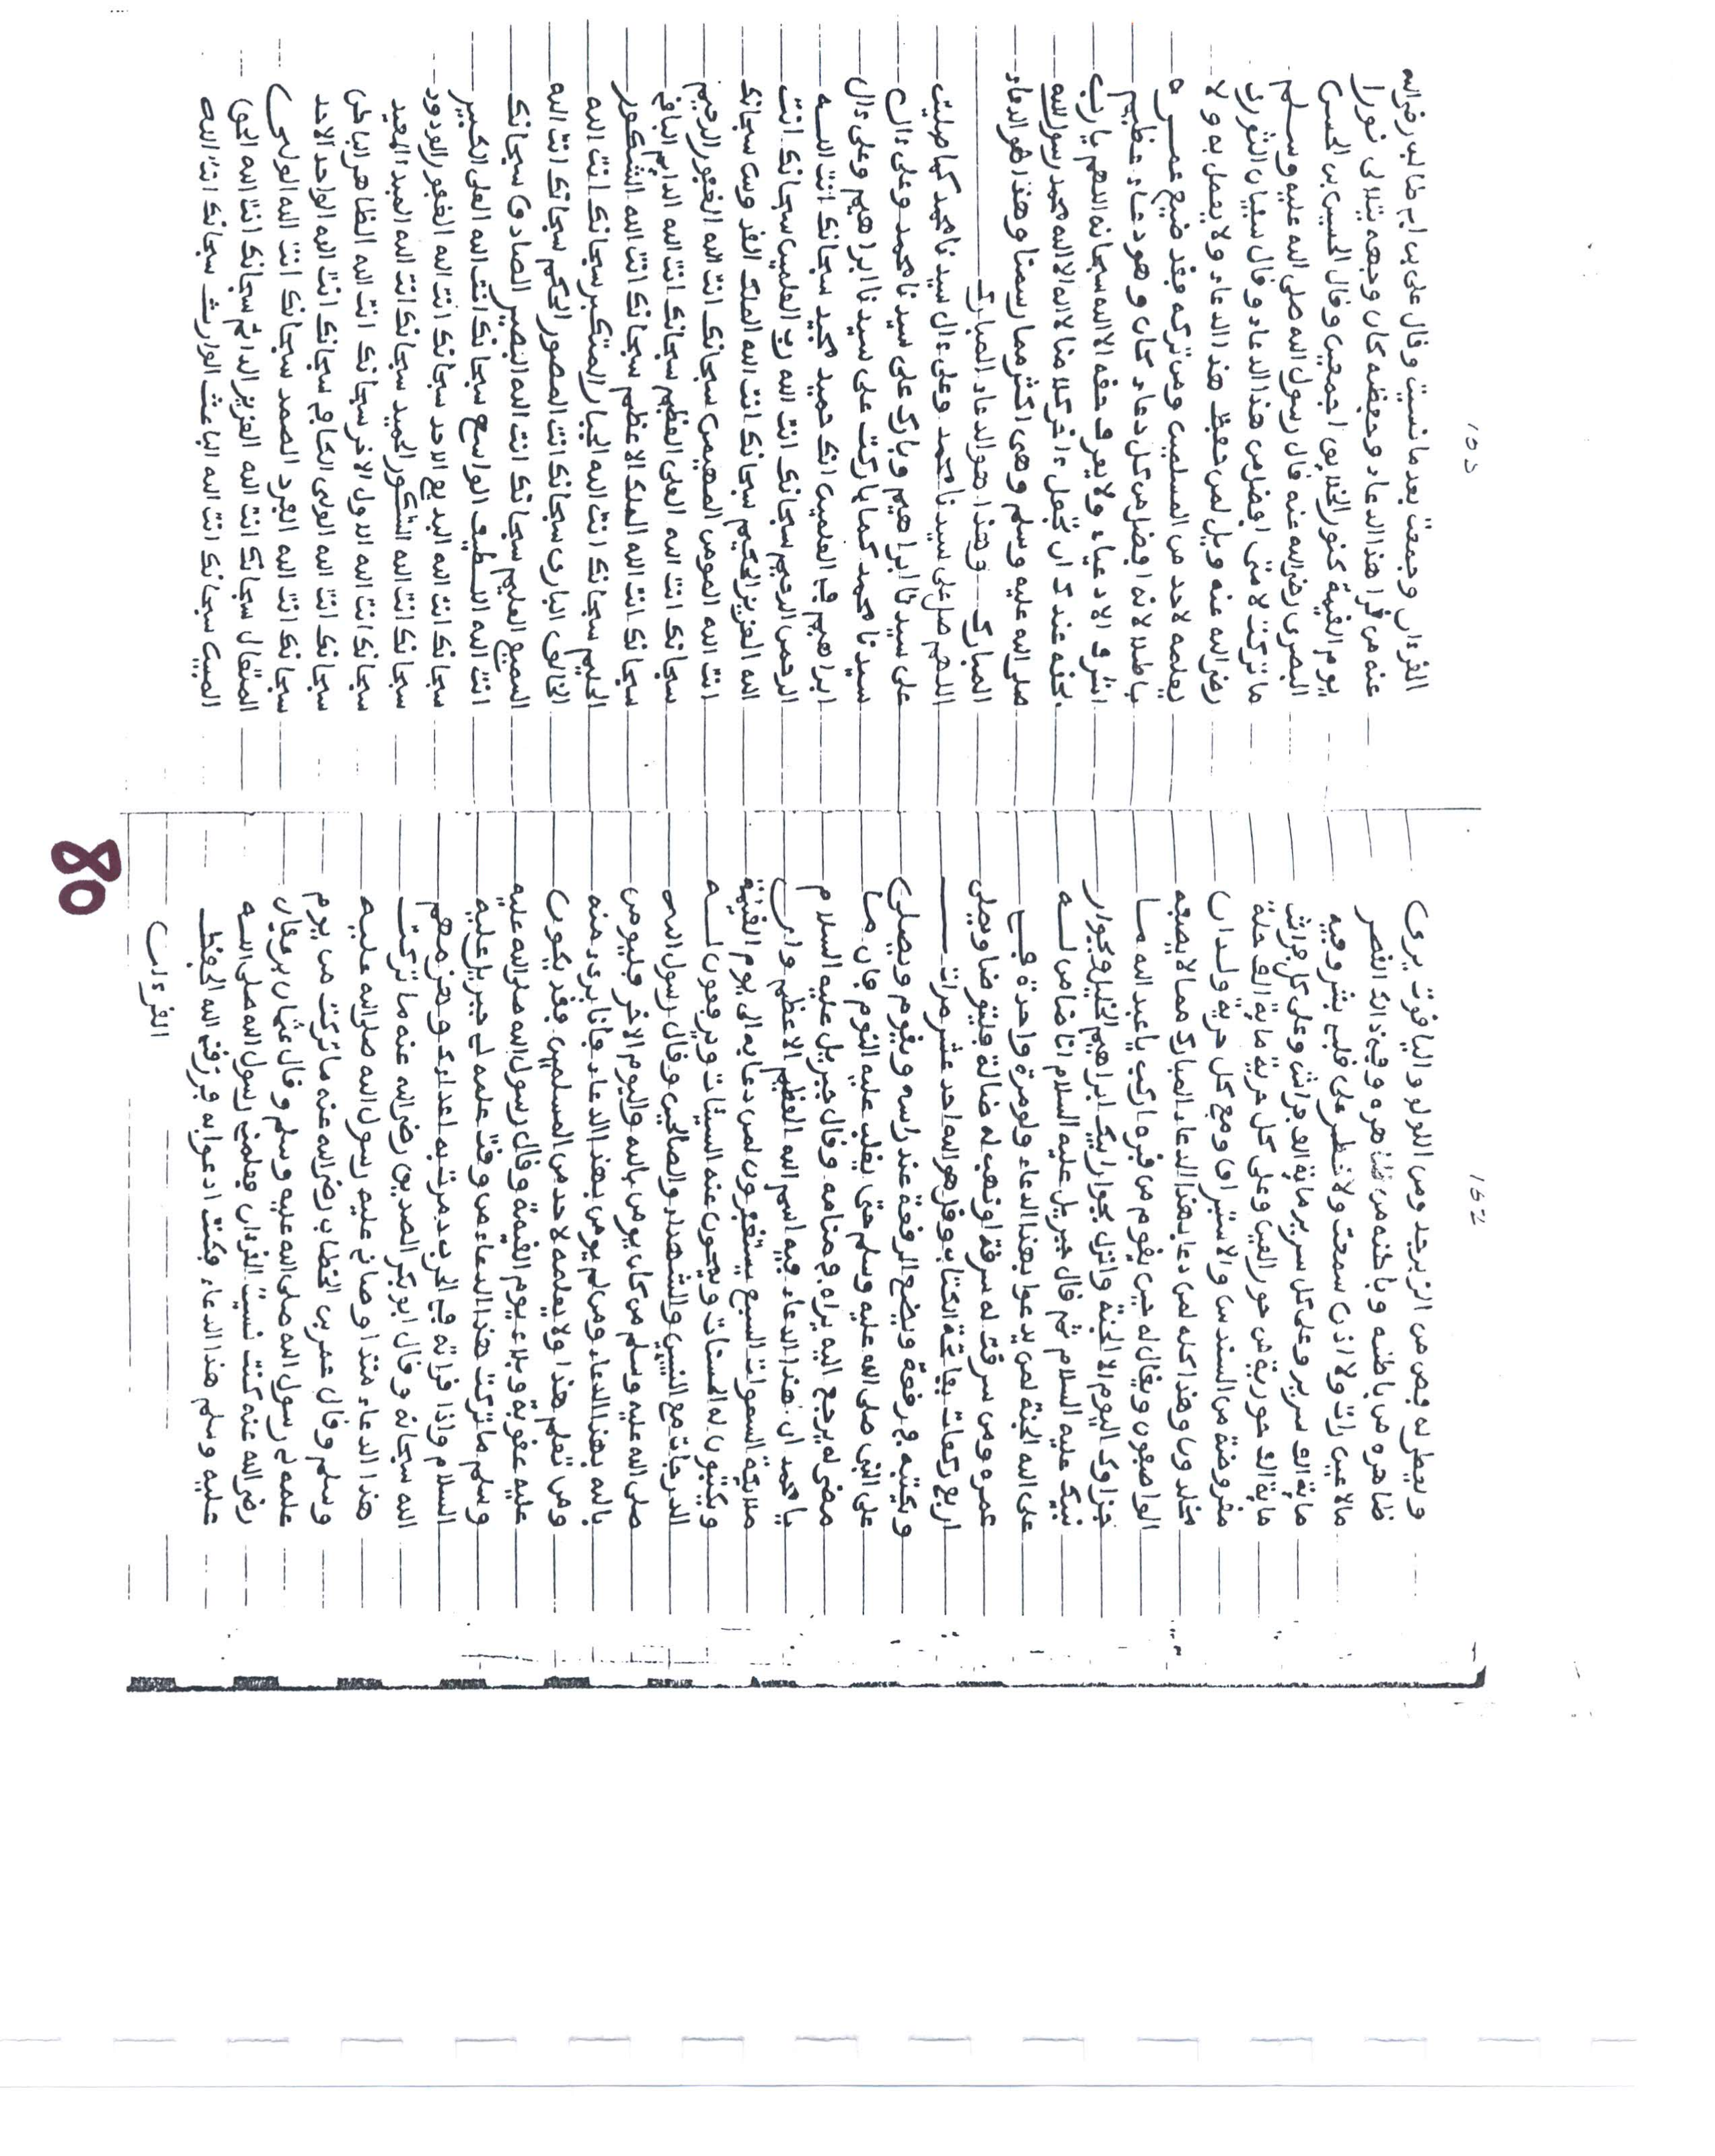 162
ويعطى له قبص من الزبرجد ومن اللولو والياقوت يرى
ظاهره من باطنه وباطنه من ظاهره وفي ذالك القصر
مالا عين رات ولا اذن سمعت ولا خطر على قلب بشر وفيه
ماية الف سرير وعلى كل سرير ماية الف فراش وعلى كل فراش
ماية الف حورية من حور العين وعلى كل حورية ماية الف حلة
مفروضة من السندس والاستبراق ومع كل حرية ولدان
مخلدون وهذا كله لمن دعا بهذا الدعاء المبارك مما لا يصفه
الواصفون ويقال له حين يقوم من قبره اركب يا عبد الله ما
جزاوك اليوم الا الجنة وانزل بجوار ابيك ابراهيم الخليل وبجوار
نبيك عليه السلام ثم قال جبريل عليه السلام انا ضامن له
على الله الجنة لمن يدعوا بهذا الدعاء ولو مرة واحدة في
عمره ومن سرقت له سرقة او ذهب له ضالة فليتوضا ويصلى
اربع ركعات بفاتحة الكتاب وقل هو الله احد عشر مرات
ويكتبه في رقعة ويضع الرقعة عند راسه ويقوم ويصلى
على النبي صلى الله عليه وسلم حتى يغلب عليه النوم فان ما
مضى له يرجع اليه يراه في منامه وقال جبريل عليه السلام
يا محمد ان هذا الدعاء فيه اسم الله العظيم الاعظم وان
ملائكة السموات السبع يستغفرون لمن دعا به الى يوم القيمة
ويكتبون له الحسنات ويمحون عنه السيئات ويرفعون له
الدرجات مع النبيين والشهداء والصالحين وقال رسول الله
صلى الله عليه وسلم من كان يومن بالله واليوم الاخر فليومن
بالله بهذا الدعاء ومن لم يومن بهذا الدعاء فانا برىء منه
ومن تعلم هذا ولا يعلمه لاحد من المسلمين فقد يكون
عليه عقوبة وبلاء يوم القيمة وقال رسول الله صلى الله عليه
وسلم ما تركت هذا الدعاء من وقت علمه لي جبريل عليه
السلام واذا قراته في الحرب دمرت به اعداءى وهزمهم
الله سبحانه وقال ابو بكر الصديق رضى الله عنه ما تركت
هذا الدعاء منذ اوصاني عليه رسول الله صلى الله عليه
وسلم وقال عمر بن الخطاب رضى الله عنه ما تركت من يوم
علمه لي رسول الله صلى الله عليه وسلم وقال عثمان بن عفان
رضى الله عنه كنت نسيت القرءان فعلمني رسول الله صلى الله
عليه وسلم هذا الدعاء فكنت ادعوا به فرزقني الله الحفظ
القرءان
القرءان وجمعت بعد ما نسيت وقال علي بن ابي طالب رضى الله
عنه من قرا هذا الدعاء وحفظه كان وجهه يتلالى نورا
يوم القيمة كنور الخلايق اجمعين وقال الحسين بن الحسن
البصرى رضى الله عنه قال رسول الله صلى الله عليه وسلم
ما تركت لامتى افضل من هذا الدعاء وقال سفيان الثورى
رضى الله عنه ويل لمن حفظ هذا الدعاء ولا يعمل به ولا
يعلمه لاحد من المسلمين ومن تركه فقد ضيع عمره
باطلا لانه افضل من كل دعاء كان وهو دعاء عظيم
اشرف الادعياء ولا يعرف حقه الا الله سبحانه اللهم يا رب
بحقه عندك ان تجعل ءاخر كلامنا لا اله الا الله محمد رسول الله
صلى الله عليه وسلم وهى اكثر مما رسمنا وهذا هو الدعاء
المبارك وهذا هو الدعاء المبارك
اللهم صل على سيدنا محمد وعلى ءال سيدنا محمد كما صليت
على سيدنا ابراهيم وبارك على سيدنا محمد وعلى ءال
سيدنا محمد كما باركت على سيدنا ابراهيم وعلى ءال
ابراهيم في العلمين انك حميد مجيد سبحانك انت الله
الرحمن الرحيم سبحانك انت الله رب العلمين سبحانك انت
الله العزيز الحكيم سبحانك انت الله الملك القدوس سبحانك
انت الله المومن المهيمن سبحانك انت الله الغفور الرحيم
سبحانك انت الله العلى العظيم سبحانك انت الله الدايم الباقي
سبحانك انت الله الملك الاعظم سبحانك انت الله الشكور
الحليم سبحانك انت الله الجبار المتكبر سبحانك انت الله
الخالق البارى سبحانك انت المصور الحكم سبحانك انت الله
السميع العليم سبحانك انت الله البصير الصادق سبحانك
انت الله اللطيف الواسع سبحانك انت الله العلى الكبير
سبحانك انت الله البديع الاحد سبحانك انت الله الغفور الودود
سبحانك انت الله الشكور الحميد سبحانك انت الله المبدء المعيد
سبحانك انت الله الاول الاخر سبحانك انت الله الظاهر الباطن
سبحانك انت الله الولى الكافي سبحانك انت الله الواحد الاحد
سبحانك انت الله الفرد الصمد سبحانك انت الله الولى
المتعال سبحانك انت الله العزيز الدائم سبحانك انت الله الحق
المبين سبحانك انت الله الباعث الوارث سبحانك انت الله
80